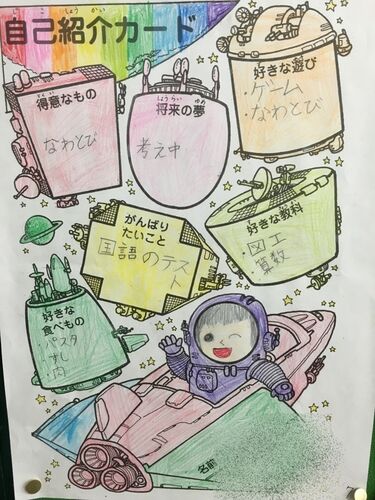 自己紹介カード
得意なもの
なわとび
将来の夢
考え中
好きな遊び
・ゲーム
・なわとび
がんばり
たいこと
国語のテスト
好きな教科
・図工
算数
好きな
食べもの
・パスタ
・すし
・肉
名前